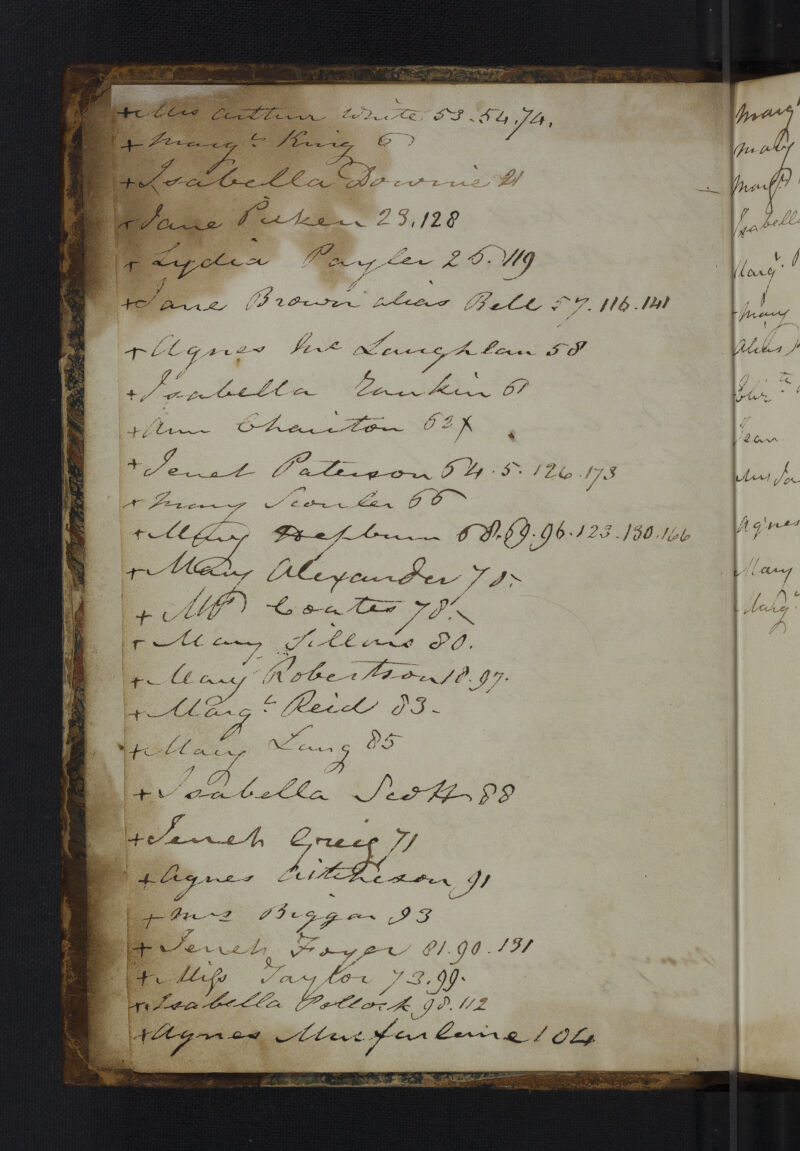 + Mrs Arthur White 53. 54. 74.
+ Margt King 6
+ Isabella Downie 21
+ Jane Picken 23. 128
+ Lydia Payler 25. 119
+ Jane Brown alias Bell 57. 116. 141
+ Agnes Mc Laughlan 58
+ Isabella Rankin 6
+ Ann Chariton 62 x
+ Jenet Paterson 64. 5. 126. 173
+ Mary Scouler 66
+ Mary Hepburn 68. 69. 96. 123. 130. 166
+ Mary Alexander 70.
+ Coates 78.
+ Mary Sillons 80.
+ Mary Robertson 18. 97.
+ Margt Reid 83.
+ Mary Lang 85
+ Isabella Scott 88
+ Jeneh Greig 71
+ Agnes Aitcheson 91
+ Mrs Biggar 93
+ Jeneh Foyer 81. 90. 131
+ Miss Taylor 73. 99.
+ Isabella Pollock 98. 112
+ Agnes Macfarlaine 104
Mary
Margt
Isabella
Margt
Mary
alias
Elizth
Jean
Mrs
Agnes
Mary
Margt